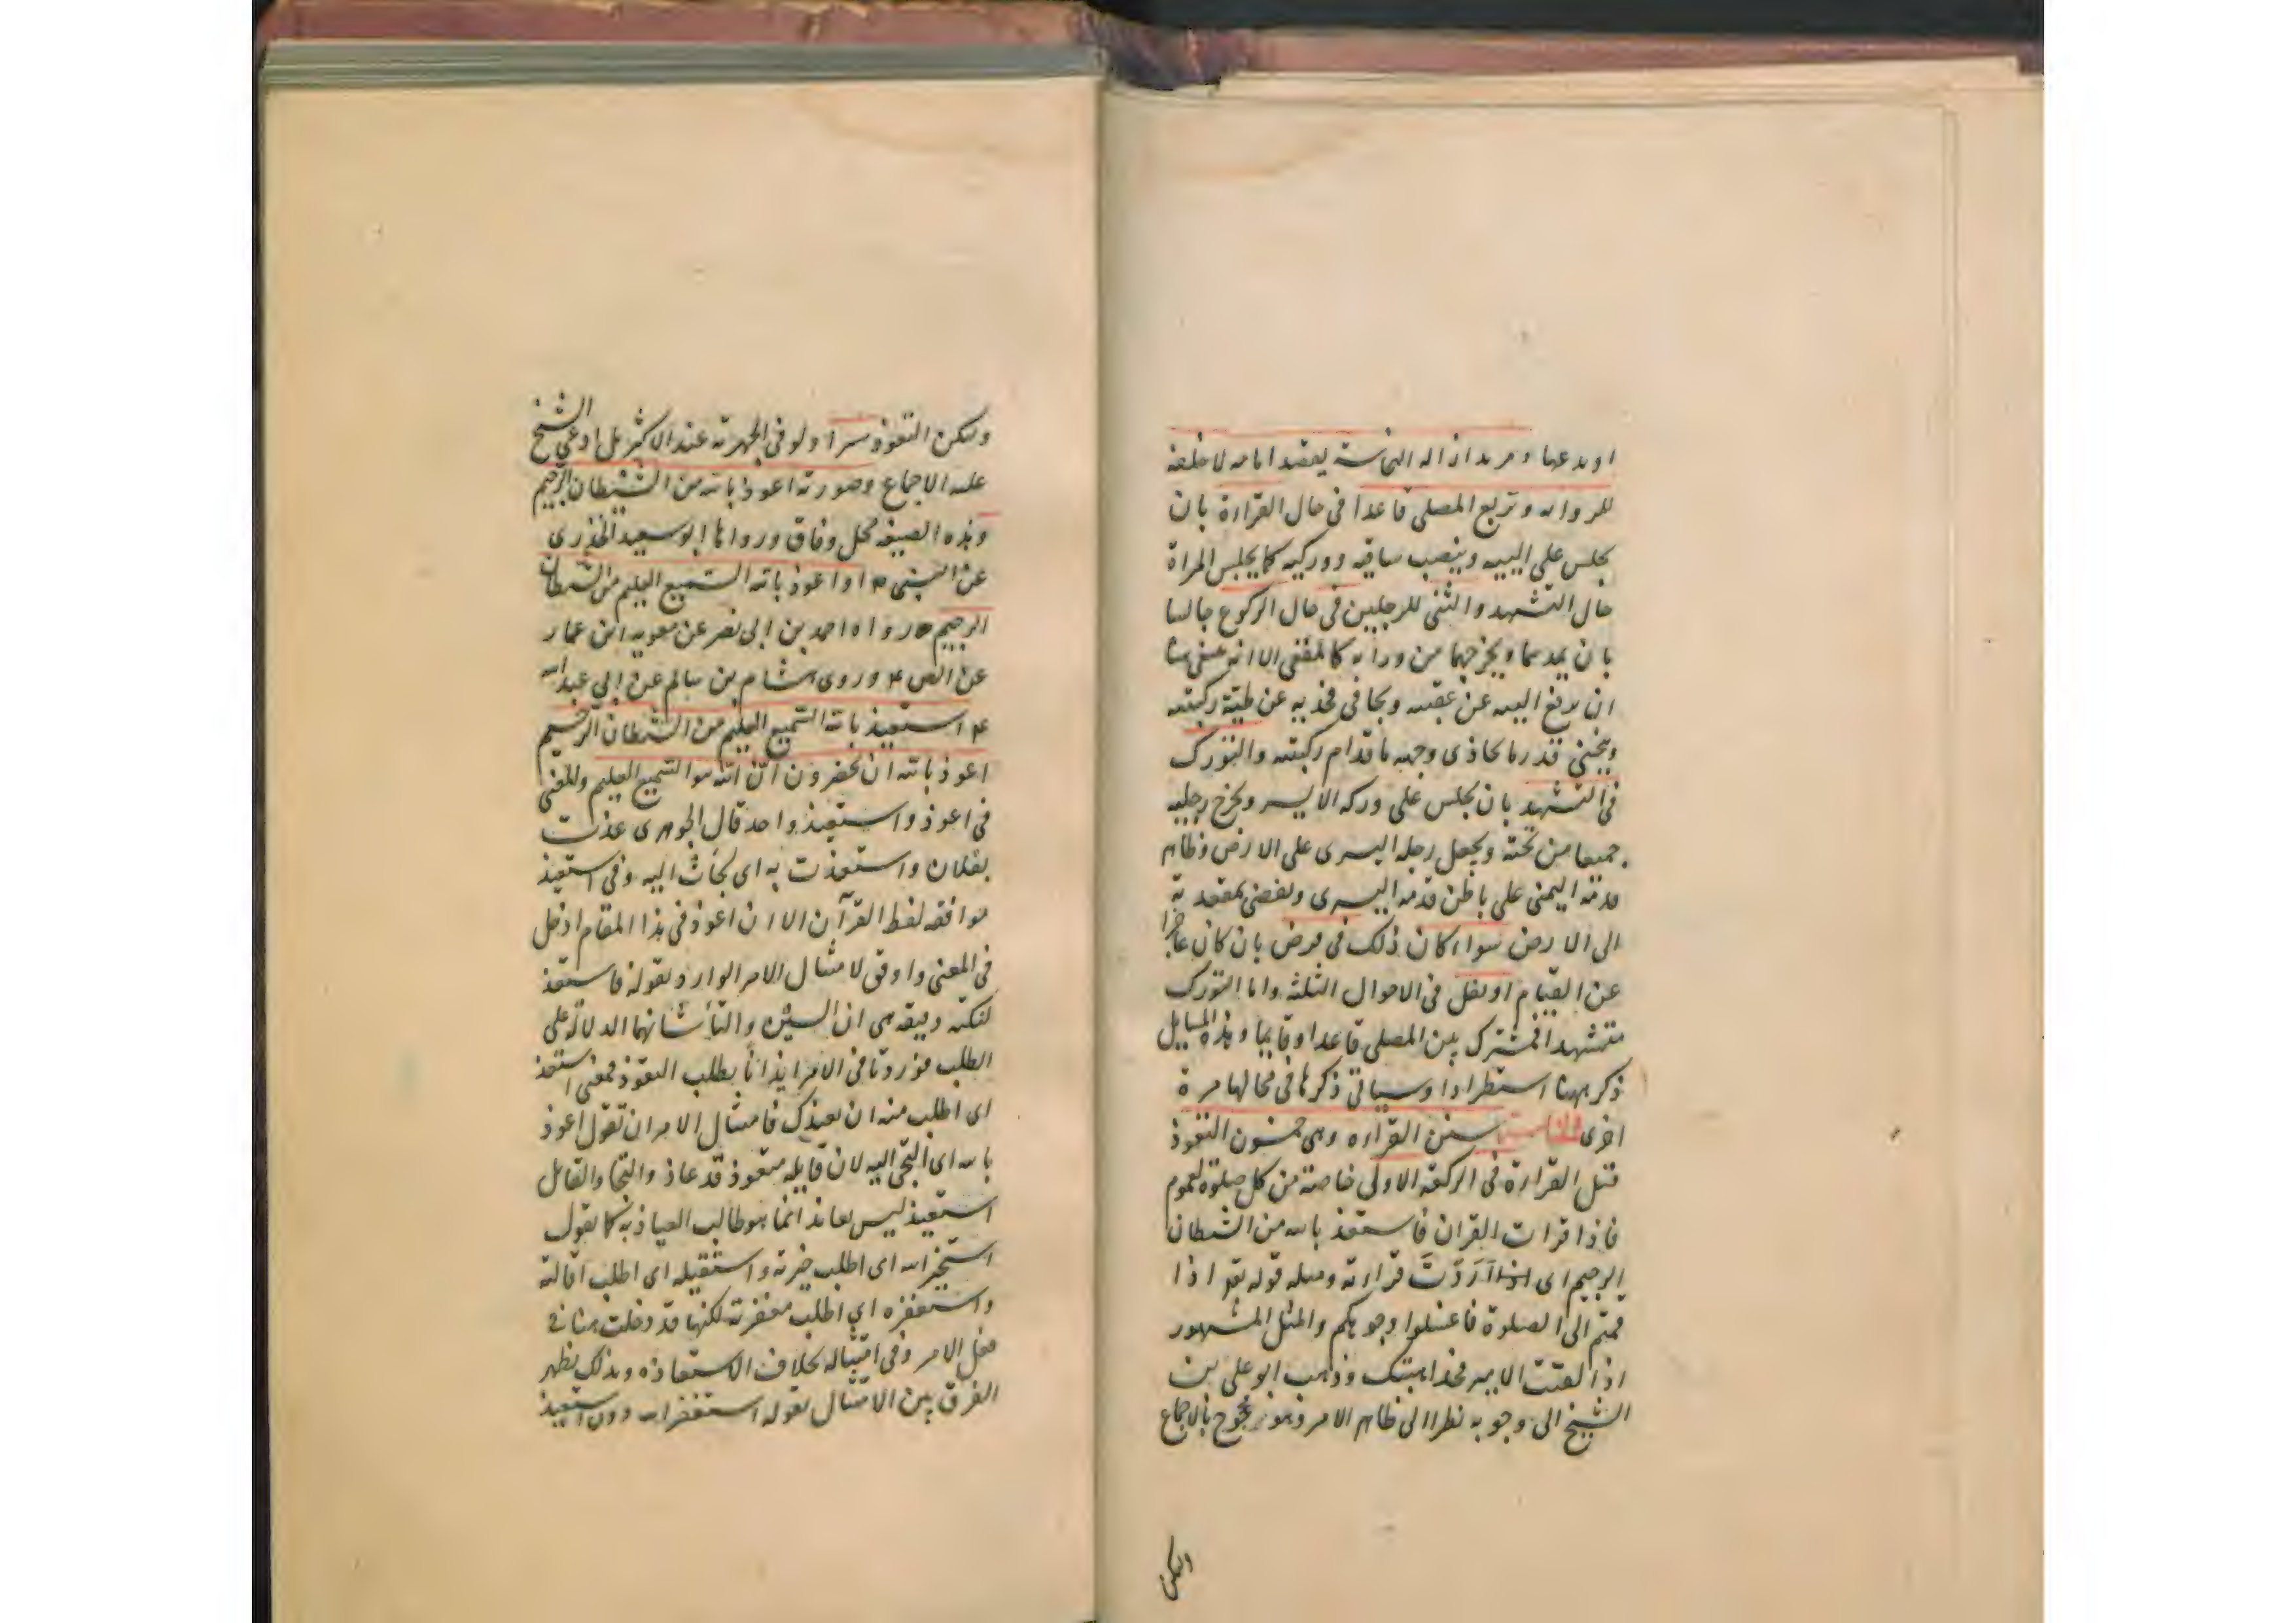 او بدعها و مريد ازاله النجاسة يقصد امامه لا خلفه
للروايه وتربع المصلى قاعدا فى حال القراءة بان
يجلس على اليتيه وينصب ساقيه ووركيه كما يجلس المراة
حال التشهد والثنى للرجلين فى حال الركوع جالسا
بان يمدهما ويخرجهما من ورائه كالمقعى الا انه
ان يرفع اليتيه عن عقبيه ويجافى فخذيه عن طية ركبتيه
وينحنى قدر ما يحاذى وجهه ما قدام ركبتيه والتورك
فى التشهد بان يجلس على وركه الايسر ويخرج رجليه
جميعا من تحته ويجعل رجله اليسرى على الارض وظاهر
قدمه اليمنى على باطن قدمه اليسرى ويفضى بمقعدته
الى الارض سواء كان ذلك فى فرض بان كان عاجزا
عن القيام او نفل فى الاحوال الثلثة واما التورك
متشهدا فمشترك بين المصلى قاعدا وقايما وهذه المسايل
ذكر ههنا استطرادا وسياتى ذكرها فى محالها مرة
اخرى سنن القراءه وهى خمسون التعوذ
قبل القراءة فى الركعة الاولى خاصة من كل صلوة لعموم
فاذا قرات القران فاستعذ بالله من الشيطان
الرجيم اى اذا اردت قراءته ومثله قوله تع اذا
قمتم الى الصلوة فاغسلوا وجوهكم والمثل المشهور
اذا لقيت الامير فخذ اهبتك وذهب ابو على بن
الشيخ الى وجوبه نظرا الى ظاهر الامر وهو محجوج بالاجماع
وليكن
وليكن التعوذ سرا ولو فى الجهرية عند الاكثر بل ادعى الشيخ
عليه الاجماع وصورته اعوذ بالله من الشيطان الرجيم
وهذه الصيغه محل وفاق ورواها ابو سعيد الخدرى
عن النبى ص او اعوذ بالله السميع العليم من الشيطان
الرجيم رواه احمد بن ابى نصر عن معويه ابن عمار
عن الص ع وروى هشام بن سالم عن ابى عبد الله
ع استعيذ بالله السميع العليم من الشيطان الرجيم
اعوذ بالله ان يحضرون ان الله هو السميع العليم والمعنى
فى اعوذ واستعيذ واحد قال الجوهرى عذت
بفلان واستعذت به اى لجأت اليه وفى استعيذ
موافقه لفظ القرآن الا ان اعوذ فى هذا المقام ادخل
فى المعنى واوفق لامتثال الامر الوارد بقوله فاستعذ
لنكتة دقيقه هى ان السين والتا شانهما الدلالة على
الطلب فوردتا فى الامر ايذانا بطلب التعوذ فمعنى استعذ
اى اطلب منه ان يعيذك فامتثال الامر ان تقول اعوذ
بالله اى التجى اليه لان قايله متعوذ قد عاذ والتجا والقايل
استعيذ ليس بعائذ انما هو طالب العياذ به كما يقول
استخير الله اى اطلب خيرته واستقيله اى اطلب اقالته
واستغفره اى اطلب مغفرته لكنها قد دخلت هنا فى
فعل الامر وفى امتثاله بخلاف الاستعاذه وبذلك يظهر
الفرق بين الامتثال بقوله استغفر الله دون استعيذ